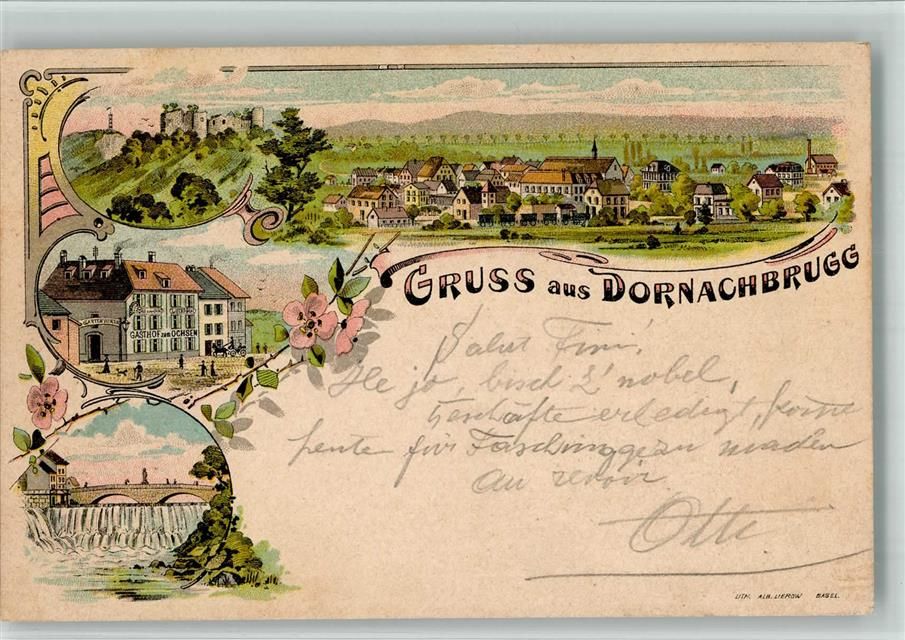 GRUSS AUS DORNACHBRUGG
GASTHOF ZUM OCHSEN
Salut Fini!
He jo, bisch z' nobel,
Geschäfte erledigt, kome
heute für Fasching
au revoir
Otto
LITH. ALB. LIEROW BASEL.